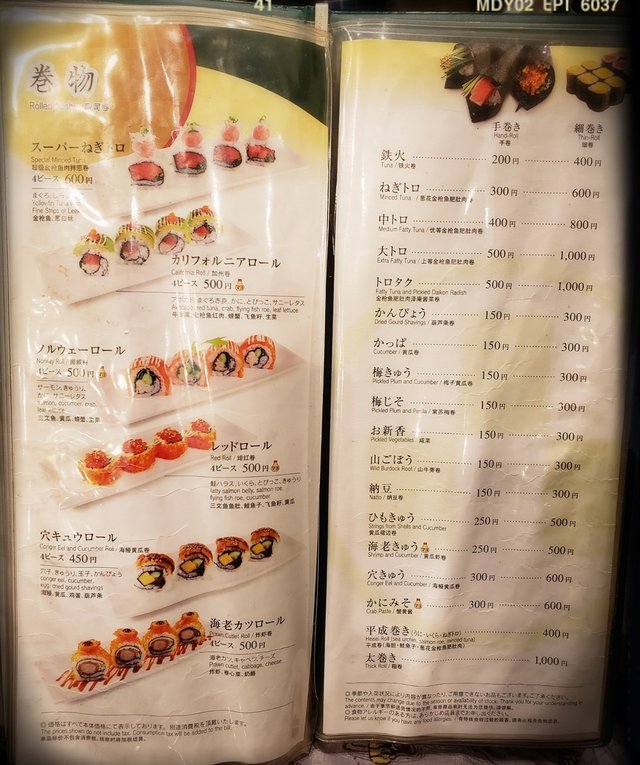 41
MDY02 EPI 6037
巻物
スーパーねぎトロ
Special Minced Tuna
4ピース 600円
Fine Strips of Leek
カリフォルニアロール
California Roll / 加州卷
4ピース 500円
ノルウェーロール
Norway Roll / 挪威卷
4ピース 500円
サーモン、きゅうり、
かに、サニーレタス
salmon, cucumber, crab,
leaf lettuce
三文鱼, 黄瓜, 螃蟹, 生菜
レッドロール
Red Roll / 绯红卷
4ピース 500円
鮭ハラス、いくら、とびっこ、きゅうり
fatty salmon belly, salmon roe,
flying fish roe, cucumber
三文鱼鱼肚, 鲑鱼子, 飞鱼籽, 黄瓜
穴キュウロール
Conger Eel and Cucumber Roll / 海鳗黄瓜卷
4ピース 450円
穴子、きゅうり、玉子、かんぴょう
conger eel, cucumber,
egg, dried gourd shavings
海鳗, 黄瓜, 鸡蛋, 葫芦条
海老カツロール
Prawn Cutlet Roll / 炸虾卷
4ピース 500円
海老カツ、キャベツ、チーズ
Prawn cutlet, cabbage, cheese
炸虾, 卷心菜, 奶酪
◎価格はすべて本体価格にて表示しております。別途消費税を頂戴いたします。
The prices shown do not include tax. Consumption tax will be added to the bill.
手巻き 細巻き
Hand-Roll Thin-Roll
手卷 细卷
鉄火 200円 400円
Tuna / 铁火卷
ねぎトロ 300円 600円
Minced Tuna / 葱花金枪鱼肥肚肉卷
中トロ 400円 800円
Medium Fatty Tuna / 优等金枪鱼肥肚肉卷
大トロ 500円 1,000円
Extra Fatty Tuna / 上等金枪鱼肥肚肉卷
トロタク 500円 1,000円
Fatty Tuna and Pickled Daikon Radish
金枪鱼肥肚肉泽庵酱菜卷
かんぴょう 150円 300円
Dried Gourd Shavings / 葫芦菜卷
かっぱ 150円 300円
Cucumber / 黄瓜卷
梅きゅう 150円 300円
Pickled Plum and Cucumber / 梅子黄瓜卷
梅じそ 150円 300円
Pickled Plum and Perilla / 紫苏梅卷
お新香 150円 300円
Pickled Vegetables / 咸菜
山ごぼう 150円 300円
Wild Burdock Root / 山牛蒡卷
納豆 150円 300円
Natto / 纳豆卷
ひもきゅう 250円 500円
Strings from Shells and Cucumber
黄瓜裙边卷
海老きゅう 250円 500円
Shrimp and Cucumber / 黄瓜虾卷
穴きゅう 300円 600円
Conger Eel and Cucumber / 海鳗黄瓜卷
かにみそ 300円 600円
Crab Paste / 蟹黄酱
平成巻き(うに・いくら・ねぎトロ) 400円
Heisei Roll (sea urchin, salmon roe, minced tuna)
平成卷 (海胆・鲑鱼子・葱花金枪鱼肥肚肉)
太巻き 1,000円
Thick Roll / 粗卷
◎季節や入荷状況により内容が異なったり、ご用意できないお品もございます。ご了承ください。
The contents may change due to the season or availability of stock. Thank you for your understanding in
advance.
◎食物アレルギーのある方は、あらかじめ店員までお申し出ください。
Please let us know if you have any food allergies.